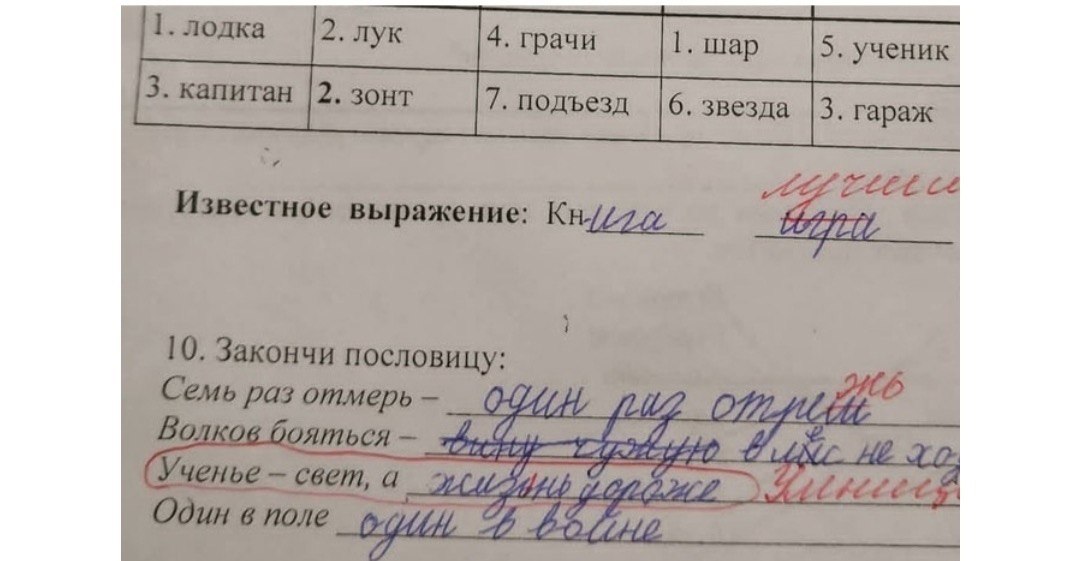 1. лодка 2. лук 4. грачи 1. шар 5. ученик
3. капитан 2. зонт 7. подъезд 6. звезда 3. гараж
лучши
Известное выражение: Книга игра
10. Закончи пословицу:
жь
Семь раз отмерь – один раз отреш
Волков бояться – вину чужую в лес не хо
Ученье – свет, а жизнь дороже
Один в поле один в войне